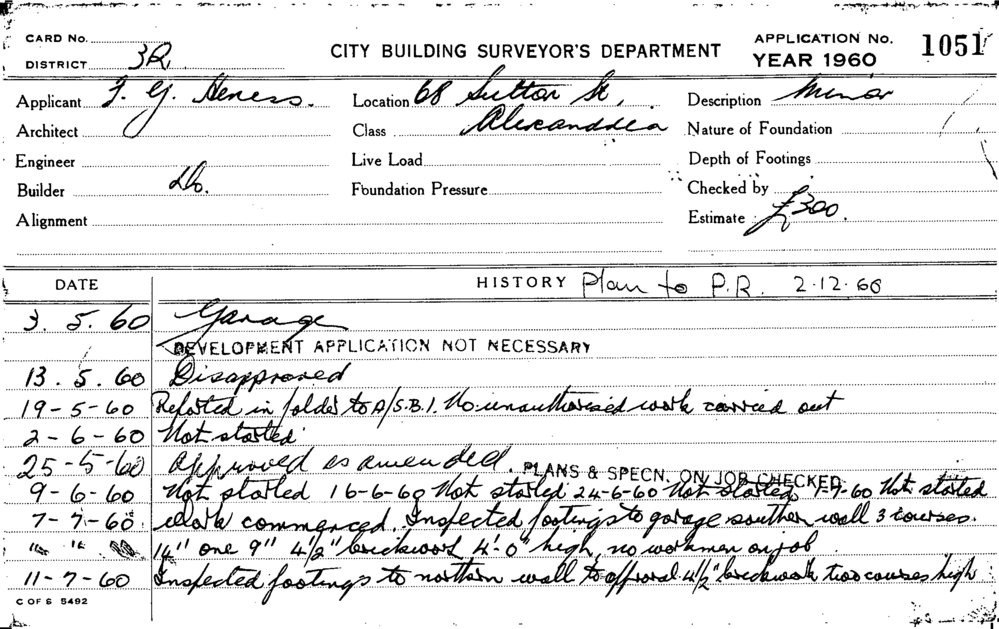 CARD No.
DISTRICT 3R.
CITY BUILDING SURVEYOR'S DEPARTMENT
APPLICATION No. 1051
YEAR 1960
Applicant F. G. Heness.
Location 68 Sutton St,
Description Minor
Architect
Class Alexandria
Nature of Foundation
Engineer
Live Load
Depth of Footings
Builder Do.
Foundation Pressure
Checked by
Alignment
Estimate £300.
DATE HISTORY Plan to P.R. 2.12.60
3. 5. 60 Garage
DEVELOPMENT APPLICATION NOT NECESSARY
13. 5. 60 Disapproved
19-5-60 Reported in folder to A/S.B.I. No unauthorised work carried out
2-6-60 Not started
25-5-60 Approved as amended. PLANS & SPECN. ON JOB CHECKED
9-6-60 Not started 16-6-60 Not started 24-6-60 Not started 1-7-60 Not started
7-7-60. Work commenced. Inspected footings to garage southern wall 3 courses.
" " 14" one 9" 4½" brickwork 4'-0" high, no workmen on job.
11-7-60 Inspected footings to northern wall to approval 4½" brickwork two courses high
C OF S 5492